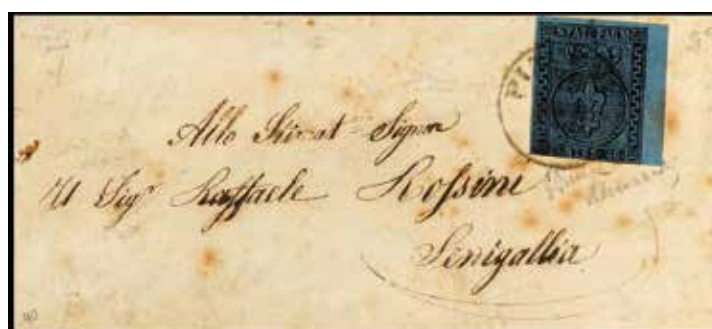 STATI PARM.
PI
Allo Stimat Signor
Il Sigr Raffaele Rossini
Senigallia
40